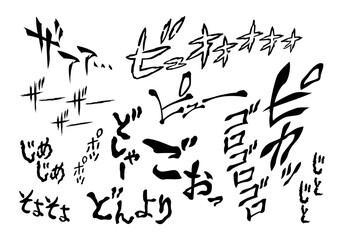 ザァァ…
ビュオォォォォ
ザー
ザー
ザー
ピュー
ピカッ
ゴロゴロゴロ
ごおっ
どしゃー
ポツ
ポツ
じめ
じめ
じと
じと
そよそよ
どんより